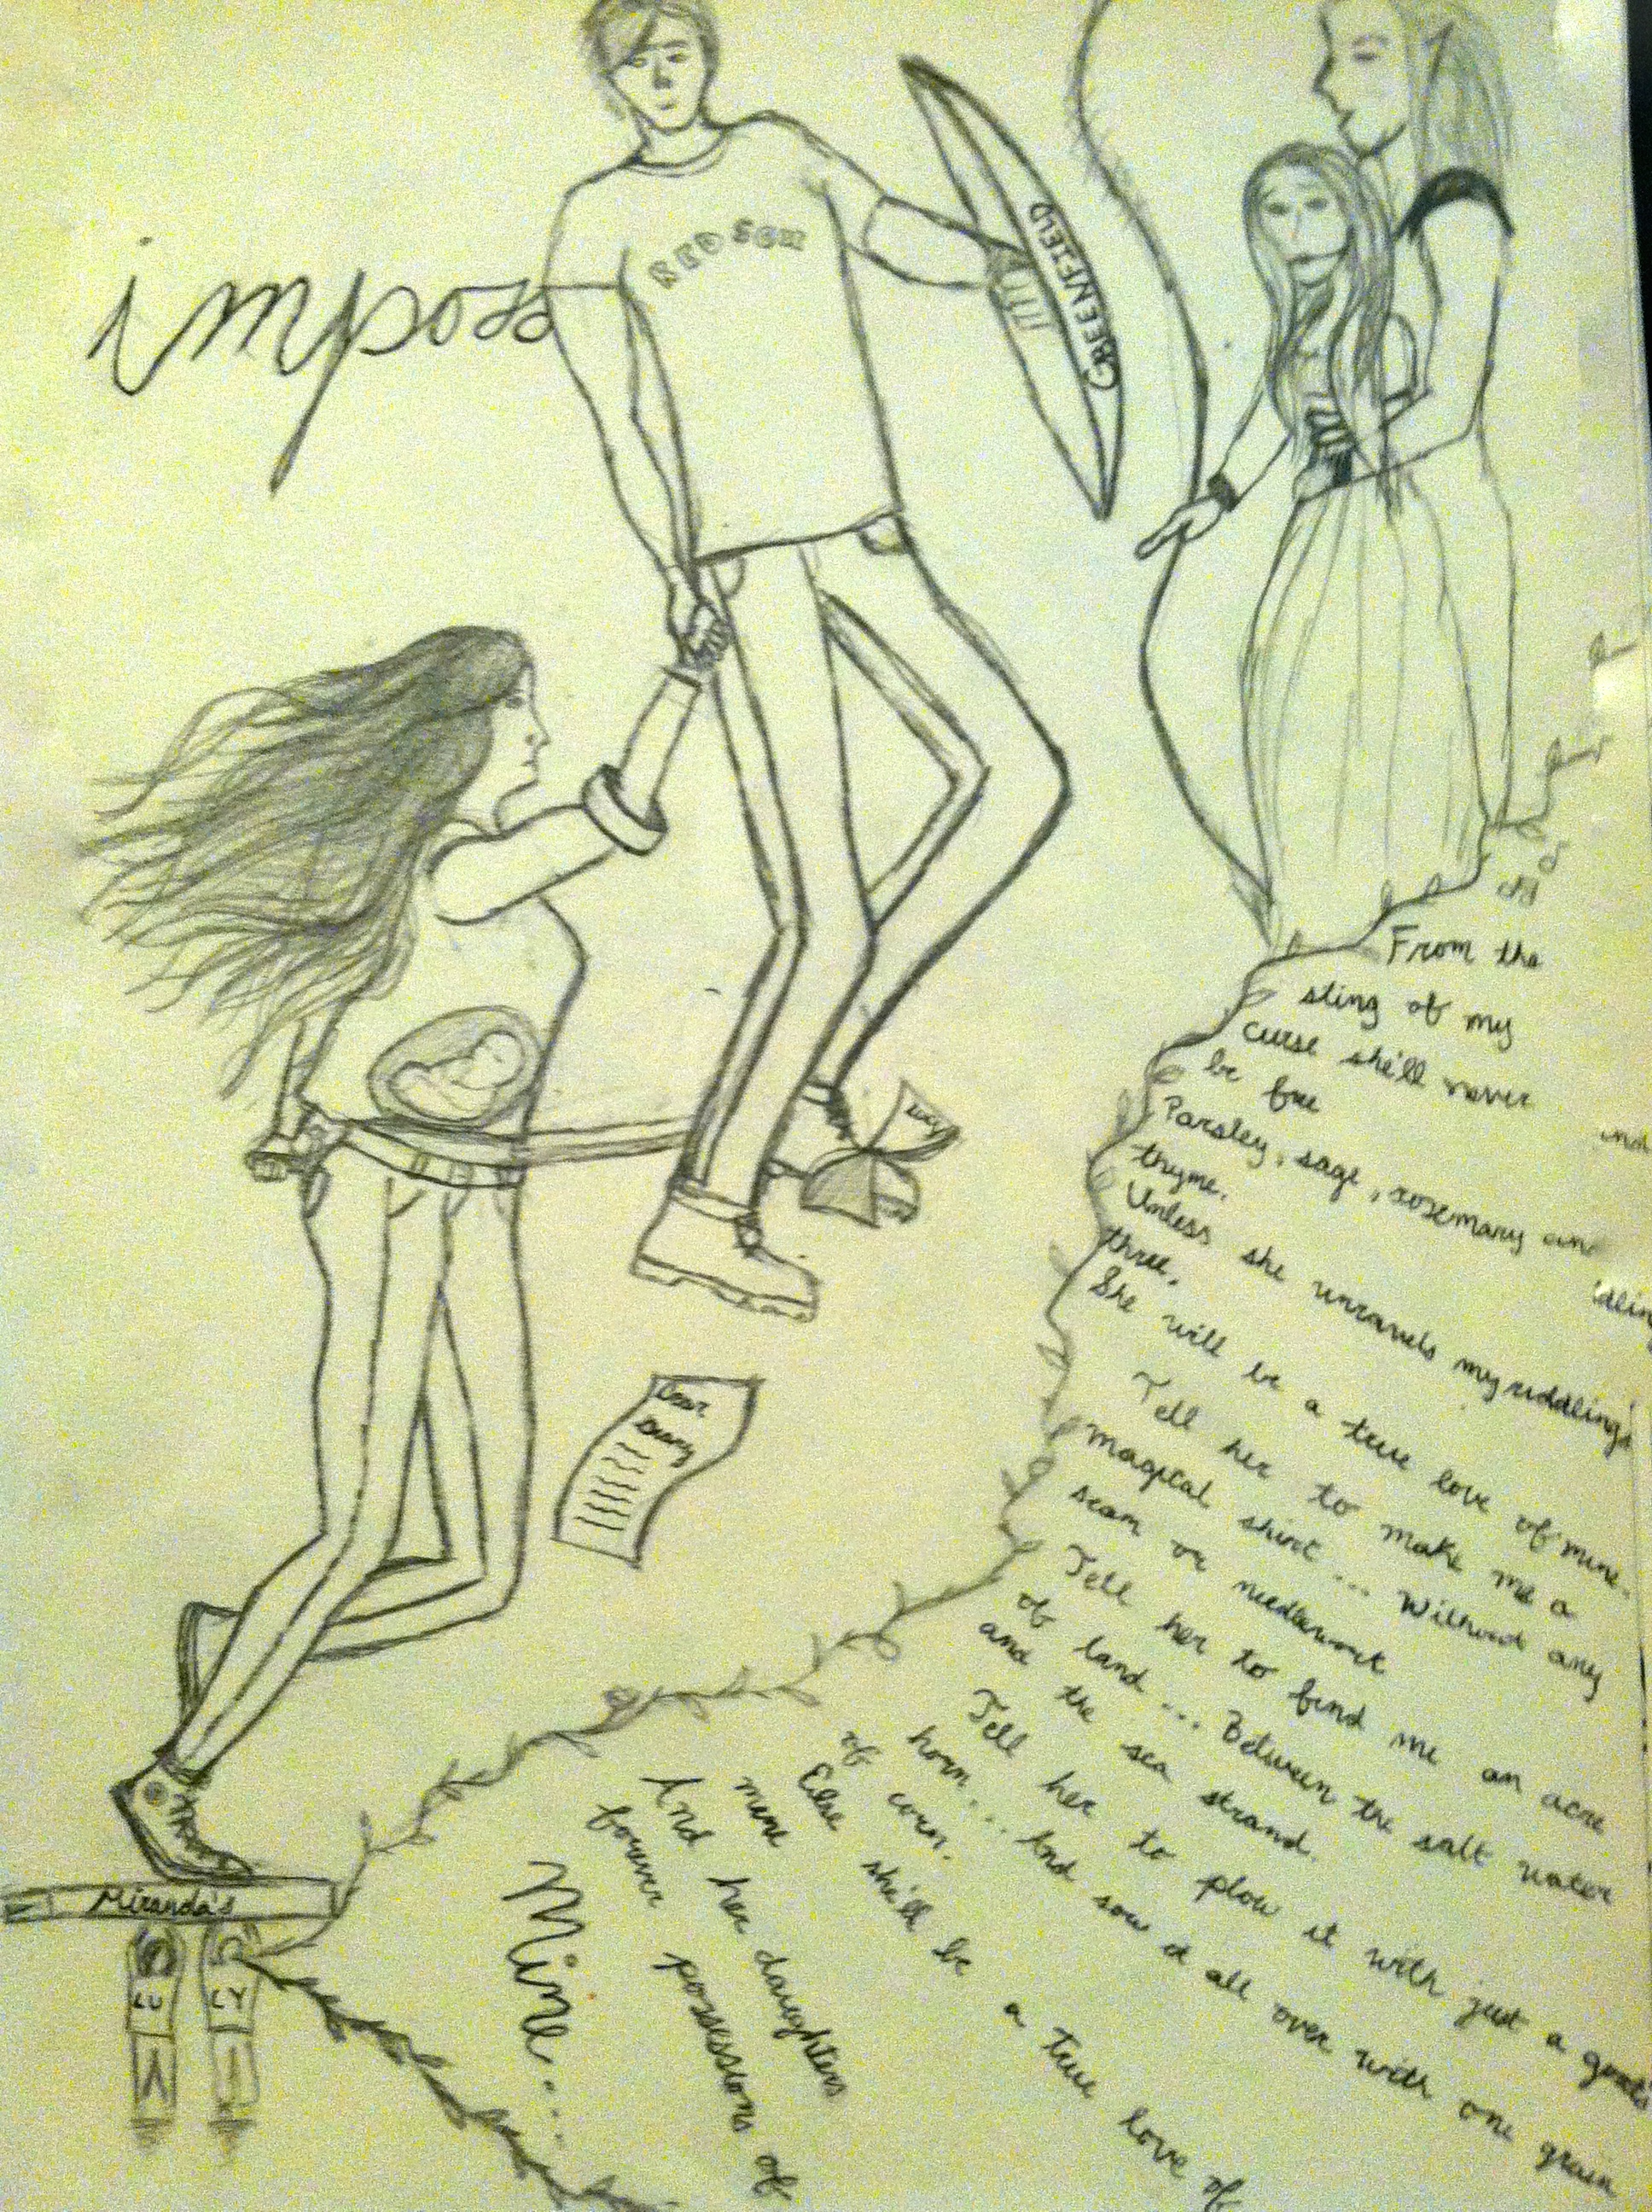 imposs
RED SOX
GREENFIELD
From the
sting of my
curse she'll never
be free
Parsley, sage, rosemary and
thyme.
Unless she unravels my riddlings
three,
She will be a true love of mine.
Tell her to make me a
magical shirt... Without any
seam or needlework
Tell her to find me an acre
of land... Between the salt water
and the sea strand.
Tell her to plow it with just a goat's
horn... And sow it all over with one grain
of corn.
Else she'll be a true love of
mine
And her daughters
forever possessions of
Mine...
Dear
Diary
Lucy
Miranda's
LU LY